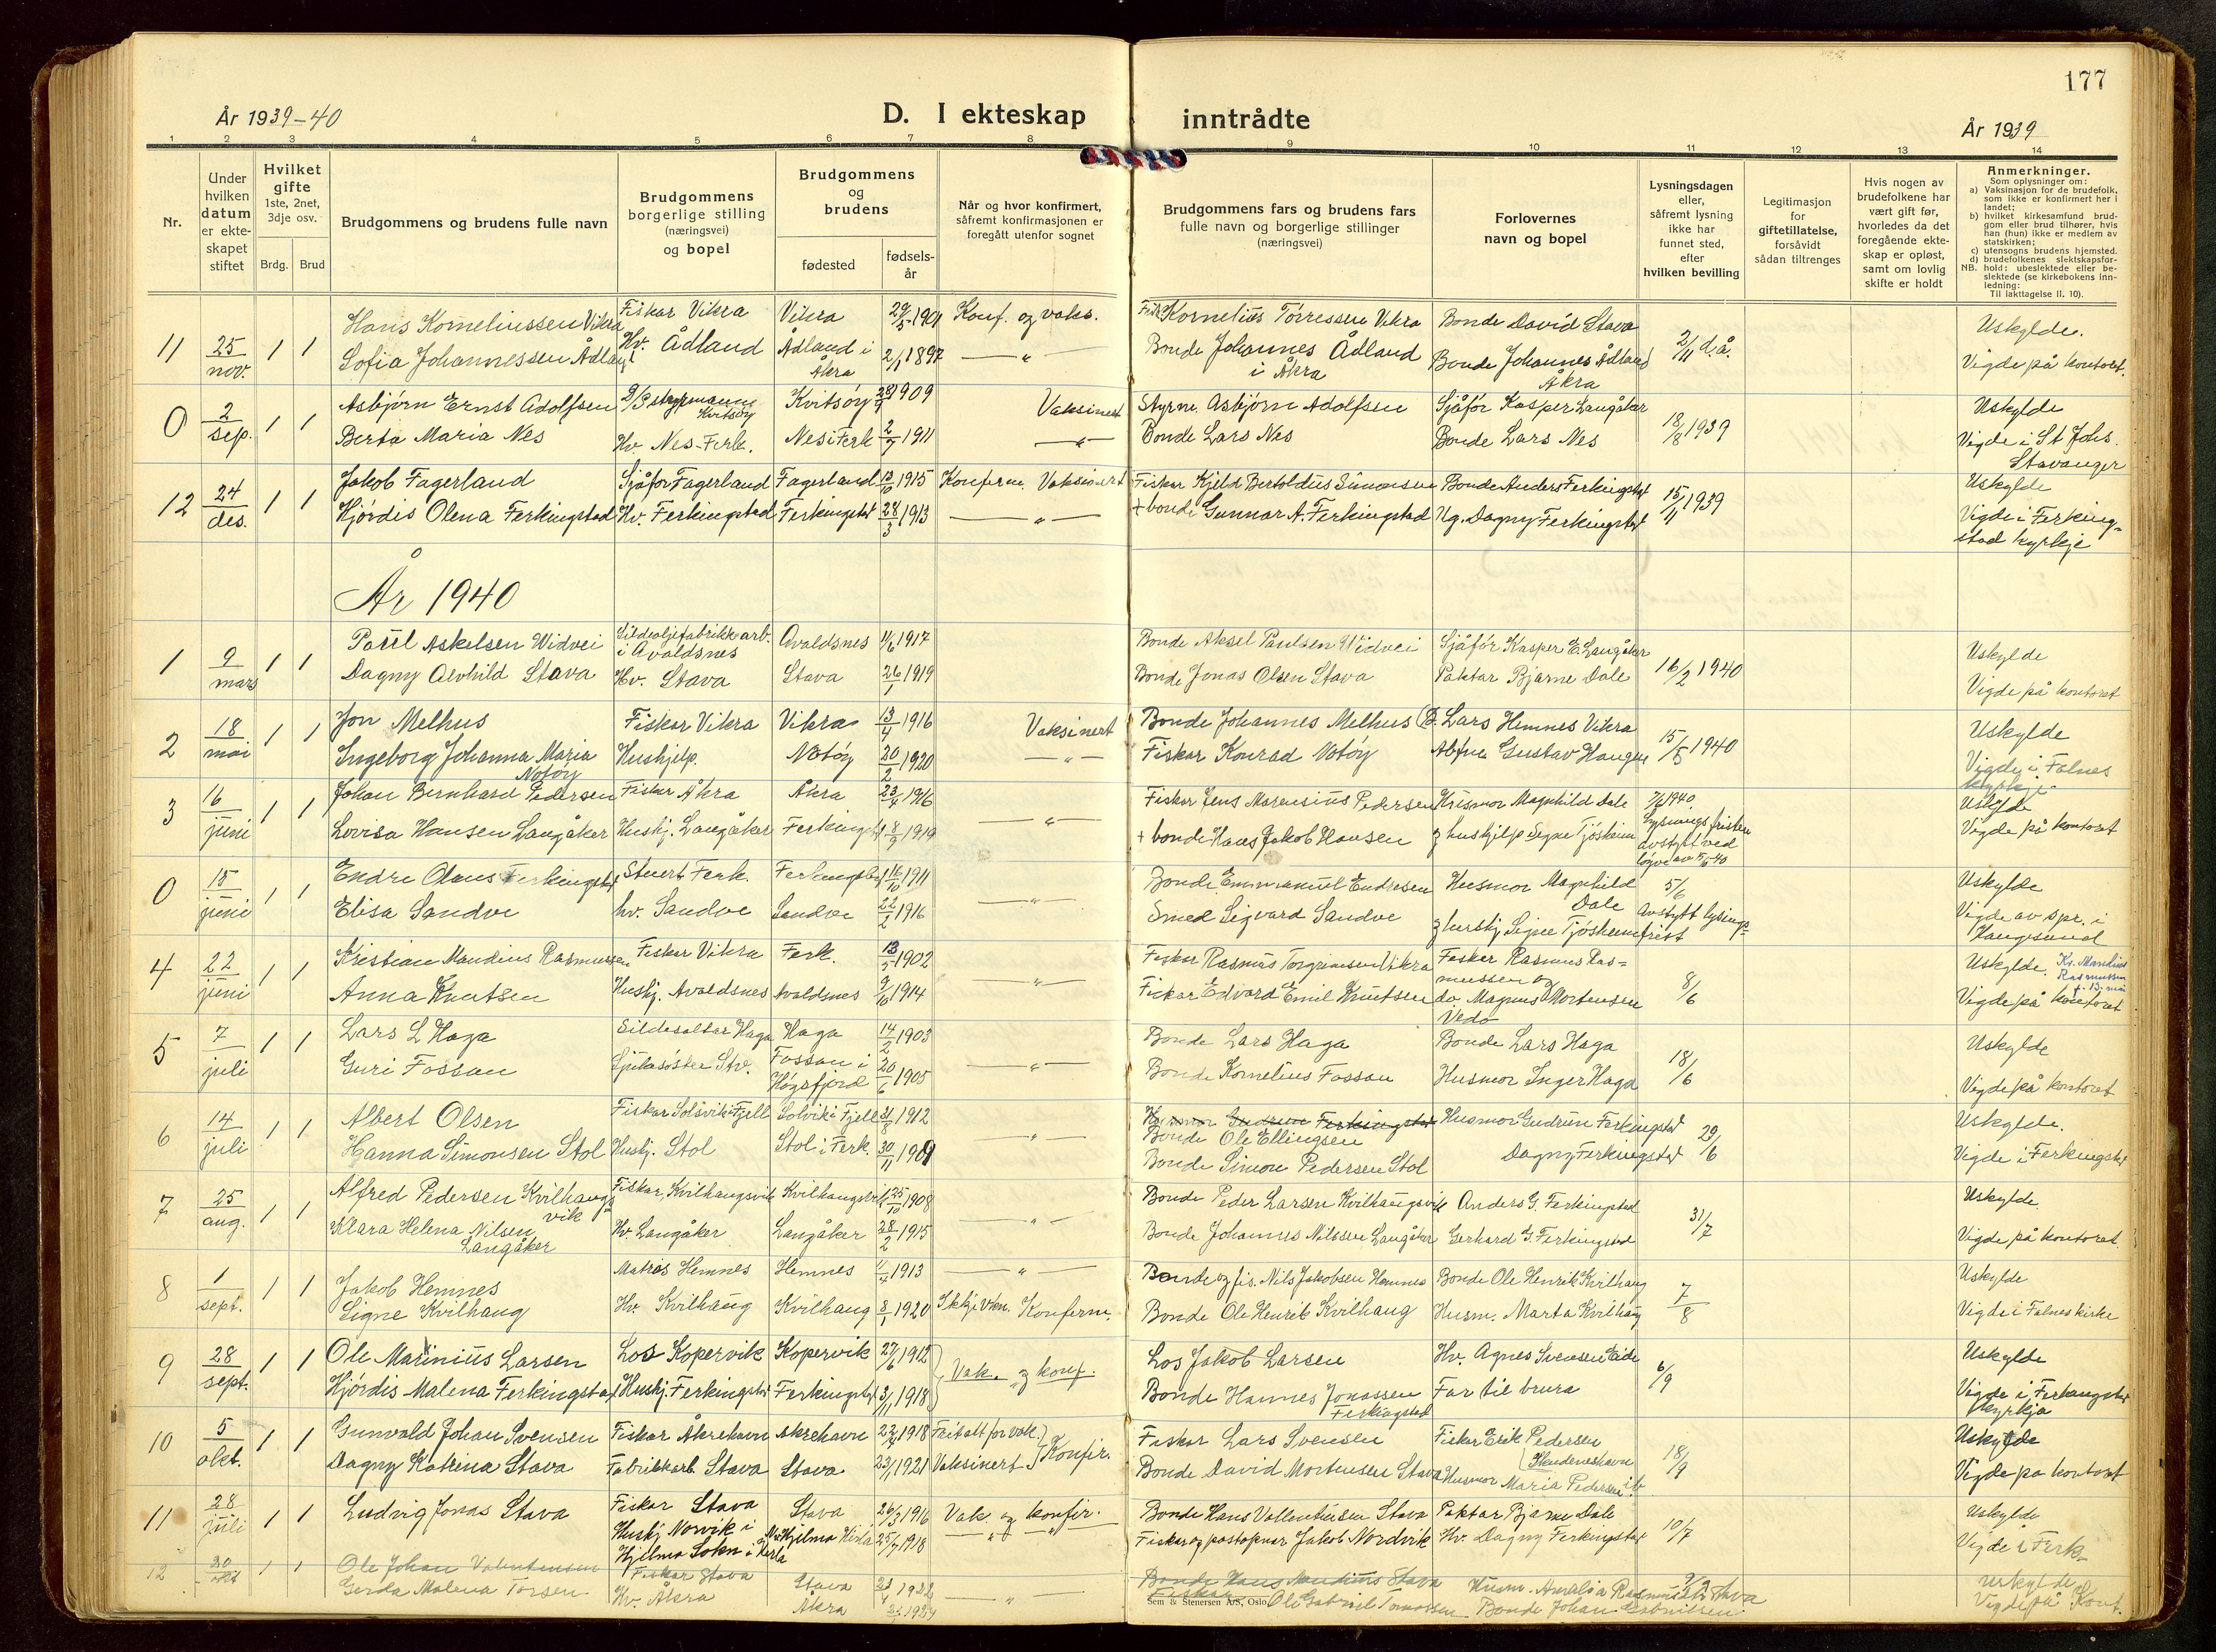 177
År 1939-40
D. I ekteskap inntrådte
År 1939
1 2 3 4 5 6 7 8 9 10 11 12 13 14
Nr.
Under hvilken datum er ekteskapet stiftet
Hvilket gifte 1ste, 2net, 3dje osv.
Brdg. Brud
Brudgommens og brudens fulle navn
Brudgommens borgerlige stilling (næringsvei) og bopel
Brudgommens og brudens
fødested
fødselsår
Når og hvor konfirmert, såfremt konfirmasjonen er foregått utenfor sognet
Brudgommens fars og brudens fars fulle navn og borgerlige stillinger (næringsvei)
Forlovernes navn og bopel
Lysningsdagen eller, såfremt lysning ikke har funnet sted, efter hvilken bevilling
Legitimasjon for giftetillatelse, forsåvidt sådan tiltrenges
Hvis nogen av brudefolkene har vært gift før, hvorledes da det foregående ekteskap er opløst, samt om lovlig skifte er holdt
Anmerkninger.
Som oplysninger om:
a) Vaksinasjon for de brudefolk, som ikke er konfirmert her i landet;
b) hvilket kirkesamfund brudgom eller brud tilhører, hvis han (hun) ikke er medlem av statskirken;
c) utensogns brudens hjemsted.
d) brudefolkenes slektskapsforhold: ubeslektede eller beslektede (se kirkebokens innledning:
NB. Til iakttagelse II. 10).
11 25/nov. 1 1 Hans Korneliussen Vikra Fiskar Vikra Vikra 29/5 1901 Konf. og vaks. Fisk. Kornelius Torressen Vikra Bonde David Stava 2/11 d.å. Uskylde.
Sofia Johannessen Ådland Hv. Ådland Ådland i Åkra 2/1 1897 — " — Bonde Johannes Ådland i Åkra Bonde Johannes Ådland Åkra Vigde på kontoret.
0 2/sep. 1 1 Asbjørn Ernst Adolfsen D/S styrmann Kvitsøy Kvitsøy 1909 Vaksinert Styrm. Asbjørn Adolfsen Sjåfør Kasper Langåker 18/8 1939 Uskylde
Berta Maria Nes Hv. Nes-Ferk. Nes i Ferk 2/7 1911 — " — Bonde Lars Nes Bonde Lars Nes Vigde i St Johs. Stavanger
12 24/des. 1 1 Jakob Fagerland Sjåfør Fagerland Fagerland 13/10 1915 Konferm. Vaksinert Fiskar Kjeld Bertoldus Simonsen Bonde Anders Ferkingstad 15/11 1939 Uskylde
Hjørdis Olena Ferkingstad Hv. Ferkingstad Ferkingstad 28/3 1913 — " — + bonde Gunnar A. Ferkingstad Ug. Dagny Ferkingstad Vigde i Ferkingstad kyrkje
År 1940
1 9/mars 1 1 Povel Askelsen Widvei Sildeoljefabrikkarb. i Avaldsnes Avaldsnes 1/6 1917 Bonde Aksel Paulsen Widvei Sjåfør Kasper E. Langåker 16/2 1940 Uskylde
Dagny Alvhild Stava Hv. Stava Stava 26/1 1919 Bonde Jonas Olsen Stava Paktar Bjarne Dale Vigde på kontoret
2 18/mai 1 1 Jon Melhus Fiskar Vikra Vikra 13/4 1916 Vaksinert Bonde Johannes Melhus B. Lars Hemnes Vikra 15/5 1940 Uskylde
Ingeborg Johanna Maria Notøy Hushjelp. Notøy 20/2 1920 — " — Fiskar Konrad Notøy Gustav Haugen Vigde i Falnes kyrkje
3 16/juni 1 1 Johan Bernhard Pedersen Fiskar Åkra Åkra 23/4 1916 Fiskar Jens Marensius Pedersen Husmor Magnhild Dale 7/6 1940. Uskylde
Lovisa Hansen Langåker Hushj. Langåker Ferkingst 8/9 1919 — " — + bonde Hans Jakob Hansen og hushjelp Signe Tjøsheim Lysingsfristen avstytt ved løyve av 7/6 40 Vigde på kontoret
0 15/juni 1 1 Endre Olaus Ferkingstad Stuert Ferk. Ferkingstad 16/10 1911 Bonde Emmanuel Endresen Husmor Magnhild Dale 5/6 Uskylde
Elisa Sandve hv. Sandve Sandve 22/2 1916 — " — Smed Sigvard Sandve og hushj Signe Tjøsheim Avstytt lysingsfrist Vigde av spr. i Haugesund
4 22/juni 1 1 Kristian Mandius Rasmussen Fiskar Vikra Ferk. 13/5 1902 Fiskar Rasmus Torgrimsen Vikra Fesker Rasmus Rasmussen og 8/6 Uskylde. Kr. Mandius Rasmussen f. 13. mai
Anna Knutsen Hushj. Avaldsnes Avaldsnes 9/10 1914 — " — Fiskar Edvard Emil Knutsen do Magnus Mortensen Vedø Vigde på kontoret
5 7/juli 1 1 Lars L Haga Sildesaltar Haga Haga 14/2 1903 Bonde Lars Haga Bonde Lars Haga 18/6 Uskylde
Guri Fossan Sjukesøster Stv. Fossan i Høgsfjord 20/6 1905 — " — Bonde Kornelius Fossan Husmor Inger Haga Vigde på kontoret
6 14/juli 1 1 Albert Olsen Fiskar Solsvik i Fjell Solvik i Fjell 31/8 1912 Husmor Gudrun Ferkingstad Bonde Ole Ellingsen Husmor Gudrun Ferkingstad 29/6 Uskylde.
Hanna Simonsen Stol Hushj. Stol Stol i Ferk. 30/11 1909 — " — Bonde Simon Pedersen Stol Dagny Ferkingstad Vigde i Ferkingstad
7 25/aug. 1 1 Alfred Pedersen Kvilhaugsvik Fiskar, Kvilhaugsvik Kvilhaugsvik 25/10 1908 Bonde Peder Larsen Kvilhaugsvik Anders G. Ferkingstad 31/7 Uskylde.
Klara Helena Nilsen Langåker Hv. Langåker Langåker 28/2 1915 — " — Bonde Johannes Nilssen Langåker Gerhard G. Ferkingstad Vigde på kontoret.
8 1/sept. 1 1 Jakob Hemnes Matros Hemnes Hemnes 1913 — " — Bonde og fis. Nils Jakobsen Hemnes Bonde Ole Henrik Kvilhaug 7/8 Uskylde
Signe Kvilhaug Hv. Kvilhaug Kvilhaug 8/1 1920 Ikkje vkn. Konferm. Bonde Ole Henrik Kvilhaug Husm. Marta Kvilhaug Vigde i Falnes kirke
9 28/sept. 1 1 Ole Marinius Larsen Los Kopervik Kopervik 27/6 1912 Vak. og konf. Los Jakob Larsen Hv. Agnes Svensen Eide 6/9 Uskylde
Hjørdis Malena Ferkingstad Hushj. Ferkingstad Ferkingstad 3/11 1918 Bonde Hannes Jonassen Ferkingstad Far til brura Vigde i Ferkingstad kyrkja
10 5/okt. 1 1 Gunvald Johan Svensen Fiskar Åkrehavn Åkrehavn 22/4 1918 Fritatt for vak. Fiskar Lars Svensen Fiskar Erik Pedersen Skudeneshavn 18/9 Uskylde
Dagny Katrina Stava Fabrikkarb. Stava Stava 23/1 1921 Vaksinert Konfir. Bonde David Mortensen Stava Husmor Maria Pedersen ib Vigde på kontoret
11 28/juli 1 1 Ludvig Jonas Stava Fiskar Stava Stava 26/3 1916 Vak. og konfir. Bonde Hans Vallentinsen Stava Paktar Bjarne Dale 10/7 Uskylde
Hushj Norvik i Hjelma Sokn i Herla Hjelma Herla 25/7 1918 — " — Fiskar og postopnar Jakob Nordvik Hv. Dagny Ferkingstad Vigde i Ferk.
12 20/okt 1 1 Ole Johan Valentinsen Fiskar Stava Stava 1922 Bonde Hans Mandius Stava Husm. Amalia Rasmussen Stava Uskylde
Gerda Malena Torsen Hv. Åkra Åkra — " — Fiskar Ole Gabriel Tomassen Bonde Johan Vigde på Kont.
Sem & Stenersen A/S, Oslo.